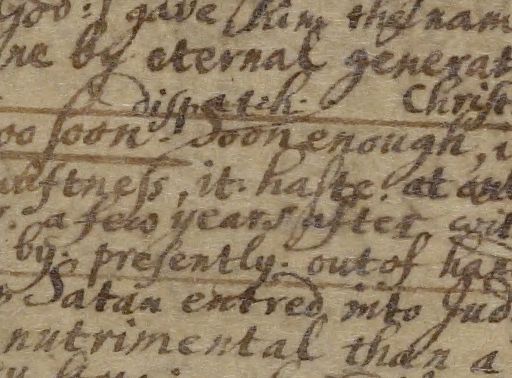 God: I gave him the nam
ne by eternal generat
dispatch. Christ
oo soon. soon enough,
swiftness, it. haste. at an
a few years after wit
by. presently. out of ha
Satan entred into Jud
nutrimental than a